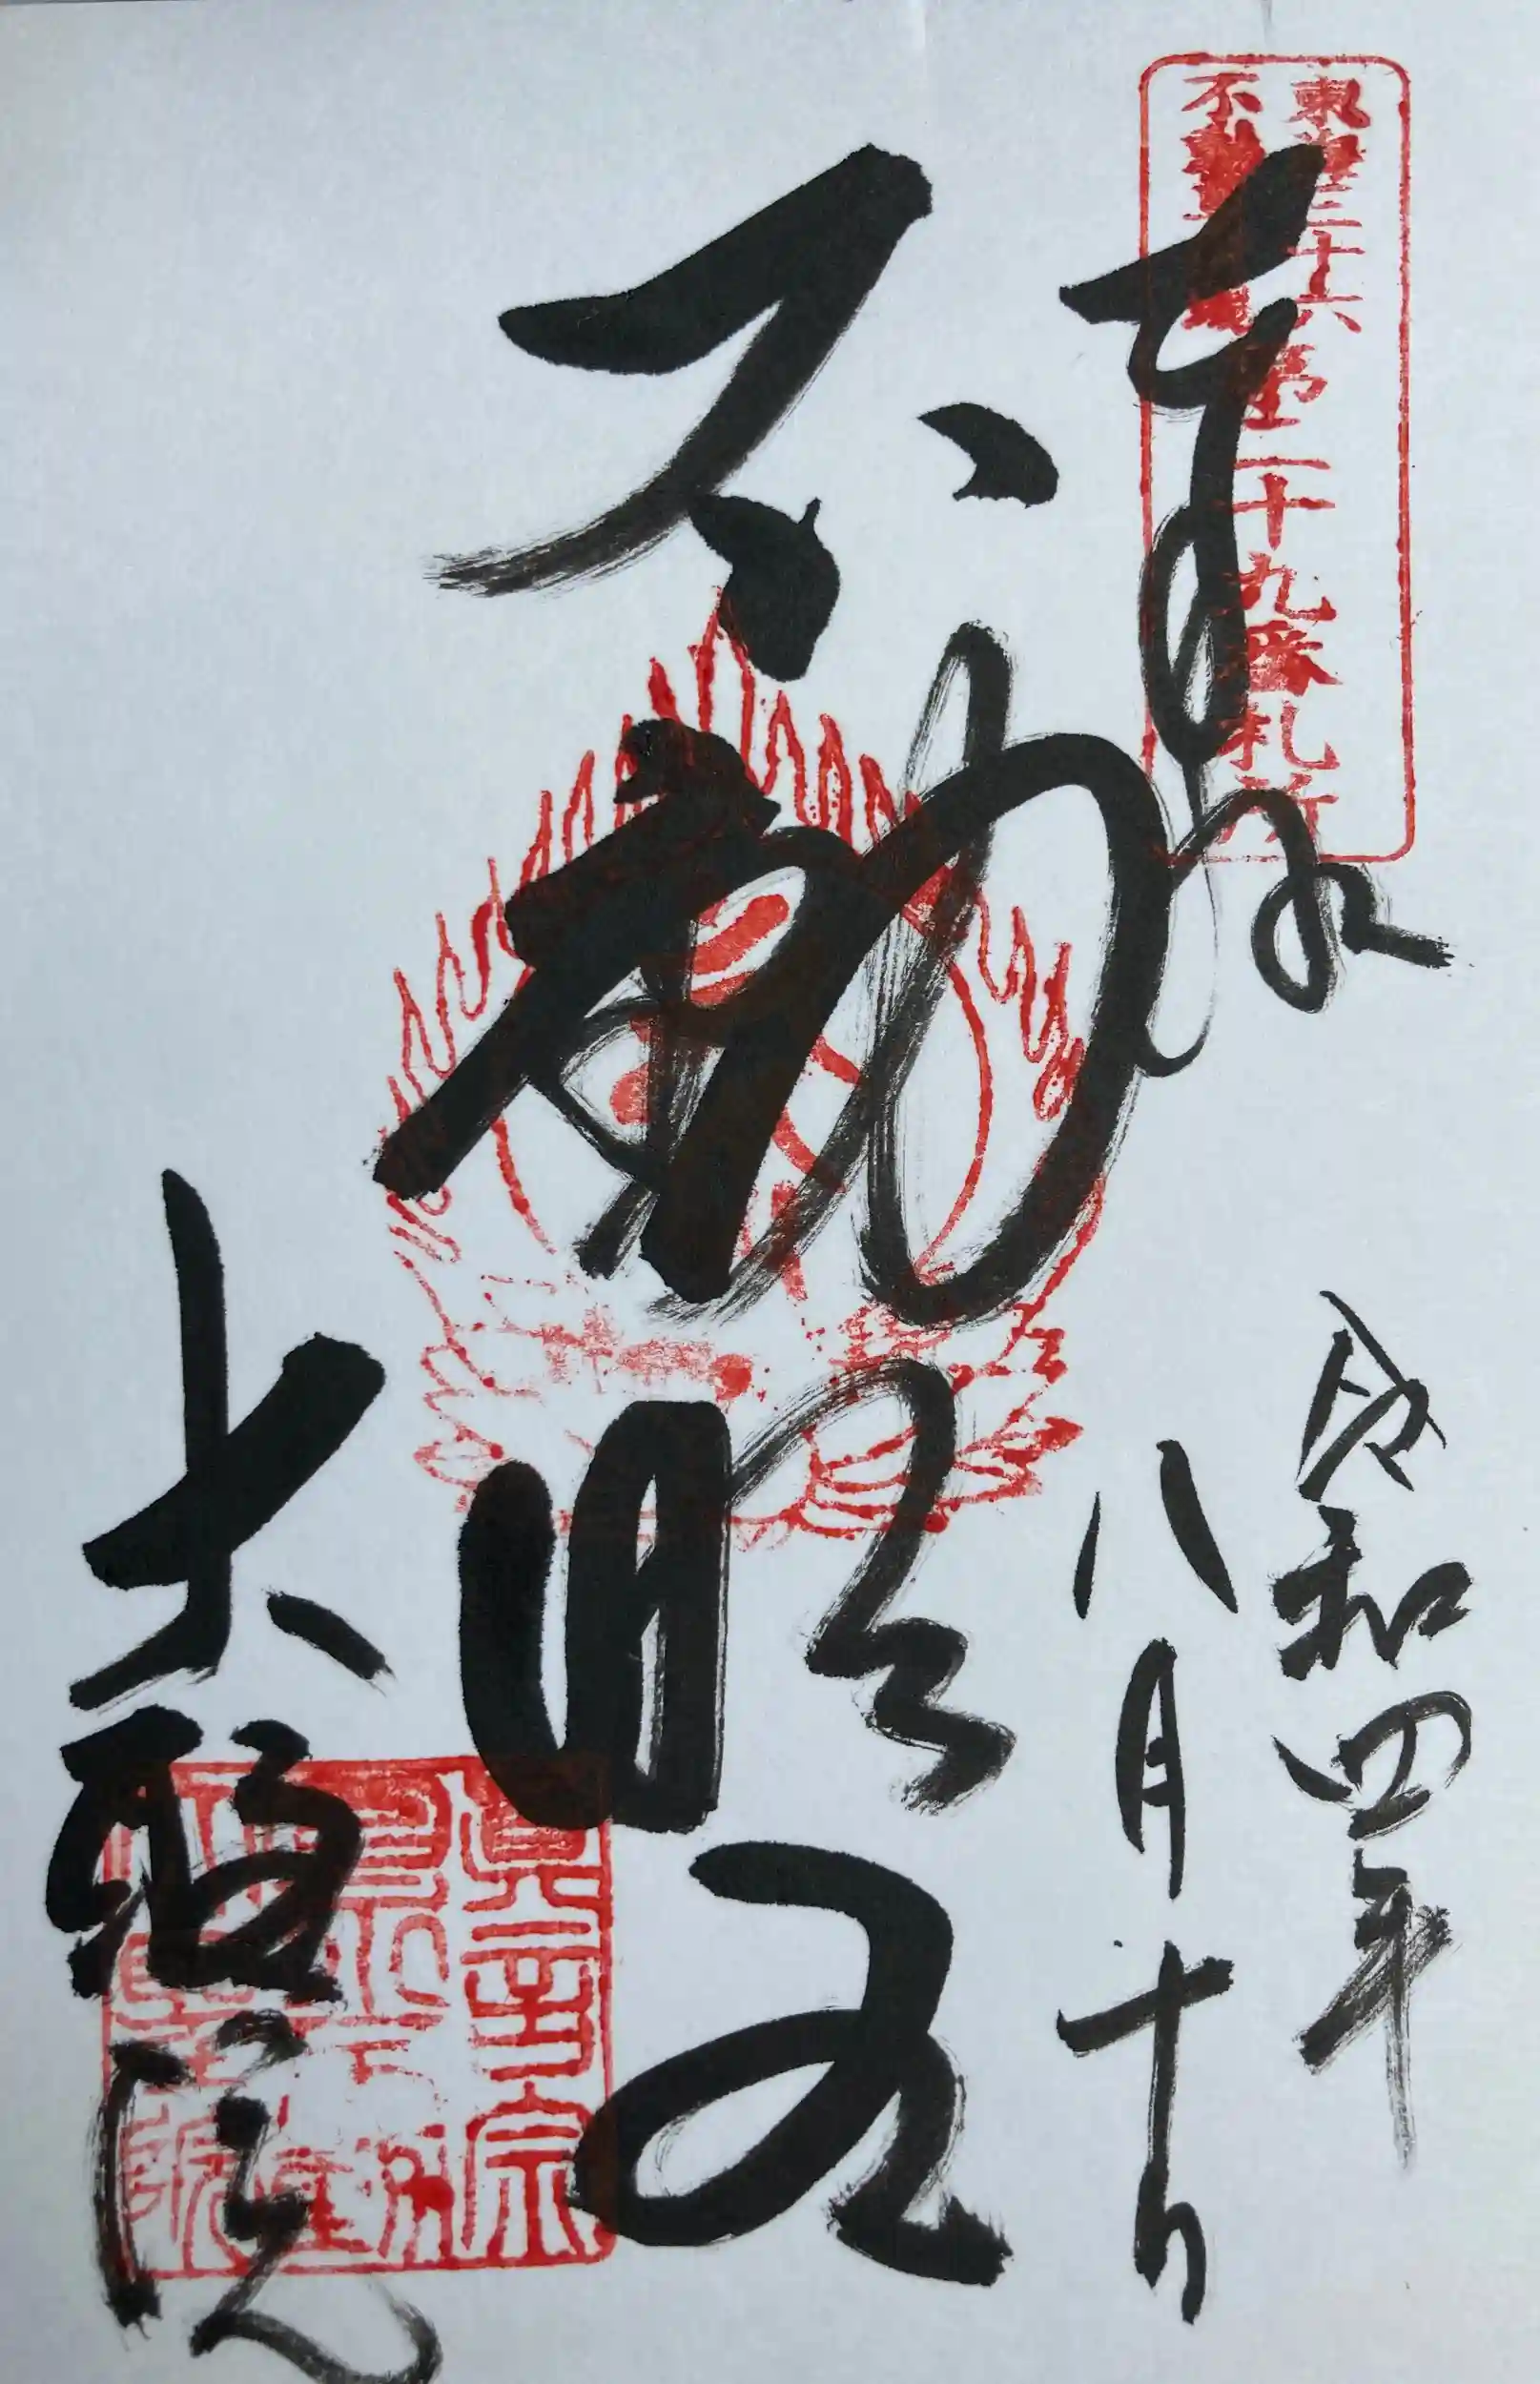 東海三十六
不動尊霊場
第二十九番札所
奉拝
令和四年
八月十日
不動明王
大聖院
真言宗